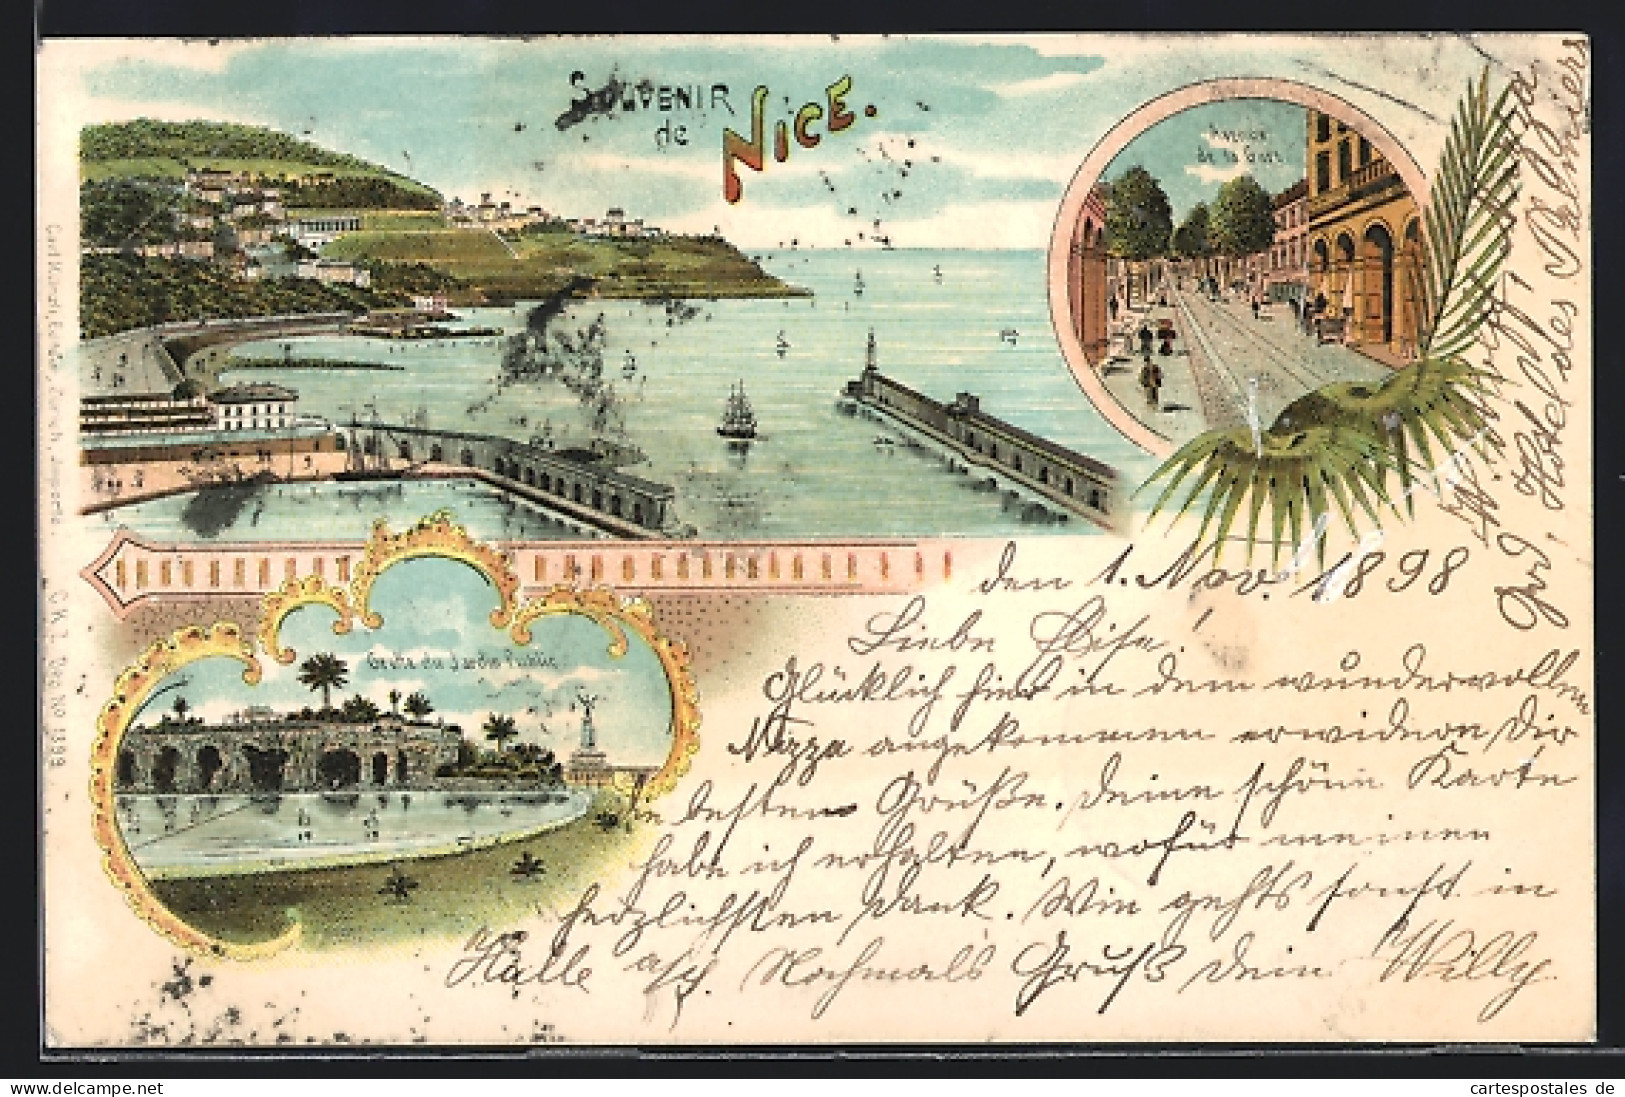 SOUVENIR
de NICE.
Avenue
de la Gare
Grotte du Jardin Public
den 1. Nov. 1898
Liebe Elise!
Glücklich hier in dem wundervollen
Nizza angekommen erwidere Dir
die besten Grüße. Deine schöne Karte
habe ich erhalten, wofür meinen
herzlichsten Dank. Wie gehts sonst in
Halle a/S. Nochmals Gruß Dein Willy
Nizza
Hotel des Palmiers
cartespostales de